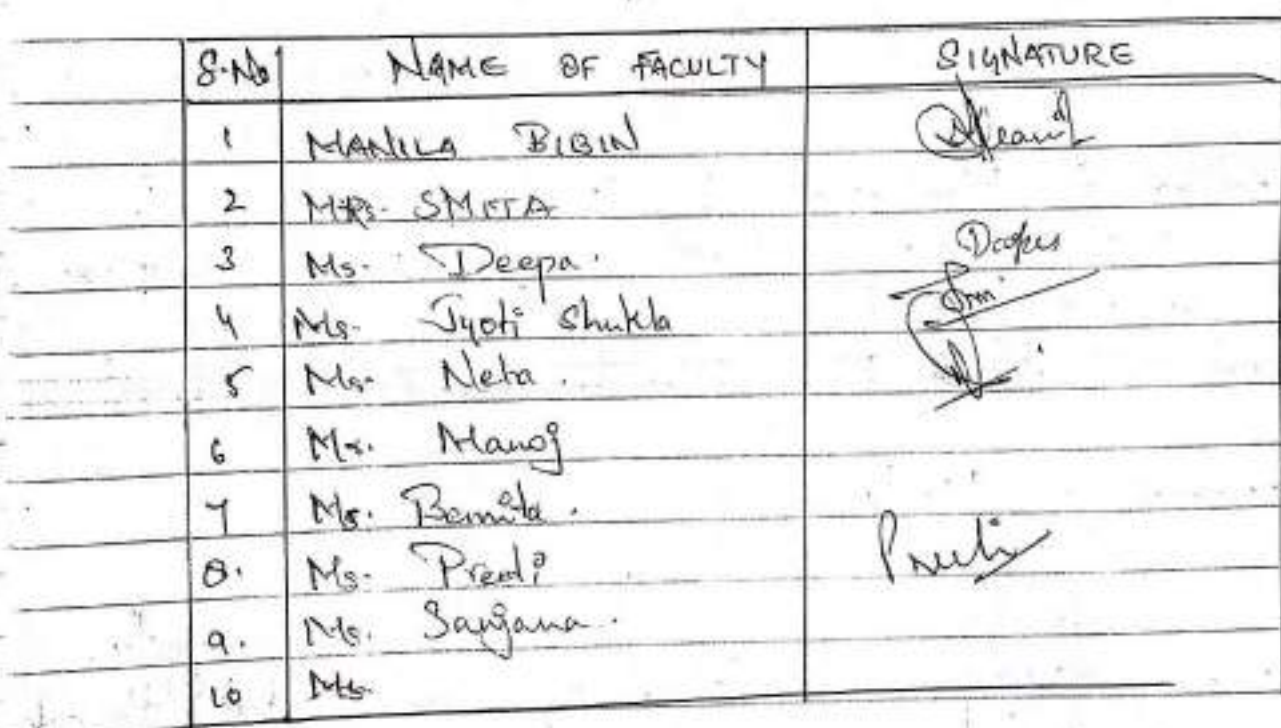 S.No NAME OF FACULTY SIGNATURE
1 MANILA BIBIN
2 MRS. SMITA
3 Ms. Deepa. Deepa
4 Ms. Jyoti Shukla
5 Ms. Neha.
6 Mr. Manoj
7 Ms. Bernita.
8. Ms. Preeti Preeti
9. Ms. Sanjana.
10 Ms.